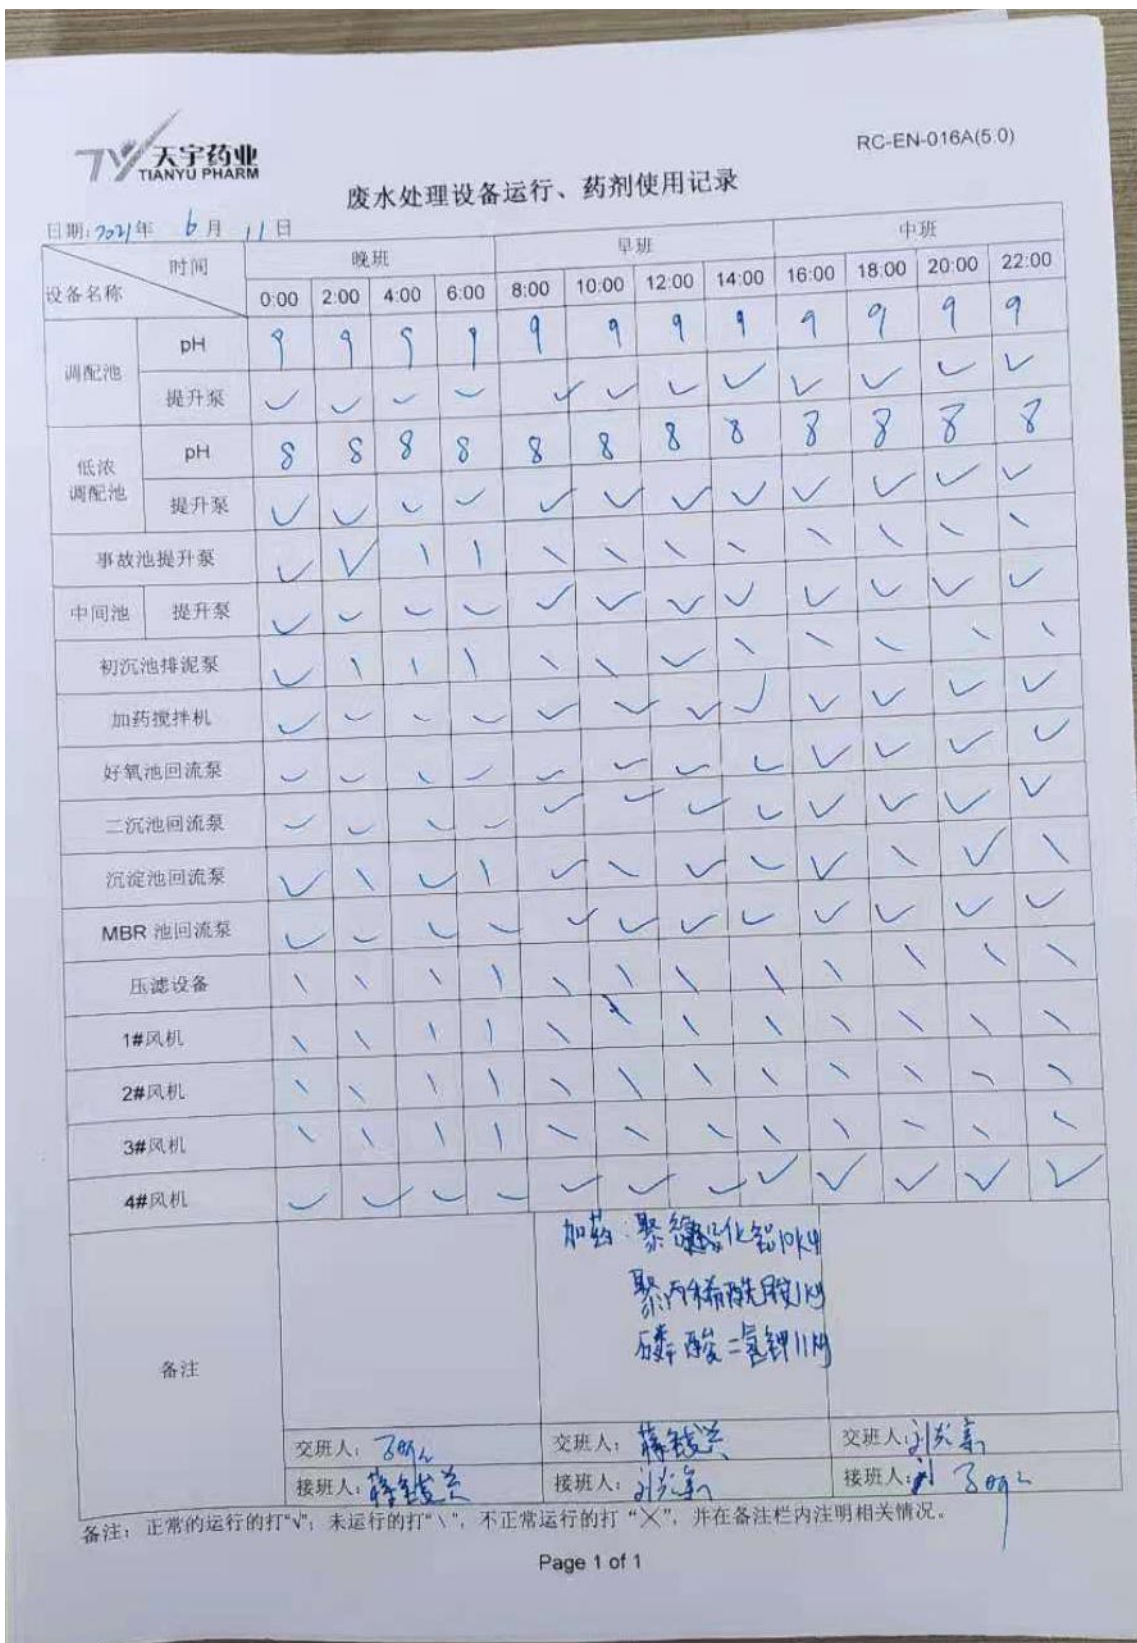 天宇药业
TIANYU PHARM
RC-EN-016A(5.0)
废水处理设备运行、药剂使用记录
日期:2021年 6月 11日
时间 晚班 早班 中班
设备名称 0:00 2:00 4:00 6:00 8:00 10:00 12:00 14:00 16:00 18:00 20:00 22:00
调配池 pH 9 9 9 9 9 9 9 9 9 9 9 9
提升泵 √ √ √ √ √ √ √ √ √ √ √ √
低浓调配池 pH 8 8 8 8 8 8 8 8 8 8 8 8
提升泵 √ √ √ √ √ √ √ √ √ √ √ √
事故池提升泵 √ √ \ \ \ \ \ \ \ \ \ \
中间池 提升泵 √ √ √ √ √ √ √ √ √ √ √ √
初沉池排泥泵 √ \ \ \ \ \ √ \ \ \ \ \
加药搅拌机 √ √ √ √ √ √ √ √ √ √ √ √
好氧池回流泵 √ √ √ √ √ √ √ √ √ √ √ √
二沉池回流泵 √ √ √ √ √ √ √ √ √ √ √ √
沉淀池回流泵 √ \ √ \ √ \ √ √ √ \ √ \
MBR 池回流泵 √ √ √ √ √ √ √ √ √ √ √ √
压滤设备 \ \ \ \ \ \ \ \ \ \ \ \
1#风机 \ \ \ \ \ \ \ \ \ \ \ \
2#风机 \ \ \ \ \ \ \ \ \ \ \ \
3#风机 \ \ \ \ \ \ \ \ \ \ \ \
4#风机 √ √ √ √ √ √ √ √ √ √ √ √
备注
加药:聚合氯化铝10kg
聚丙稀酰胺1kg
磷酸二氢钾11kg
交班人: 交班人: 交班人:
接班人: 接班人: 接班人:
备注: 正常的运行的打“√”; 未运行的打“\”, 不正常运行的打“×”, 并在备注栏内注明相关情况。
Page 1 of 1